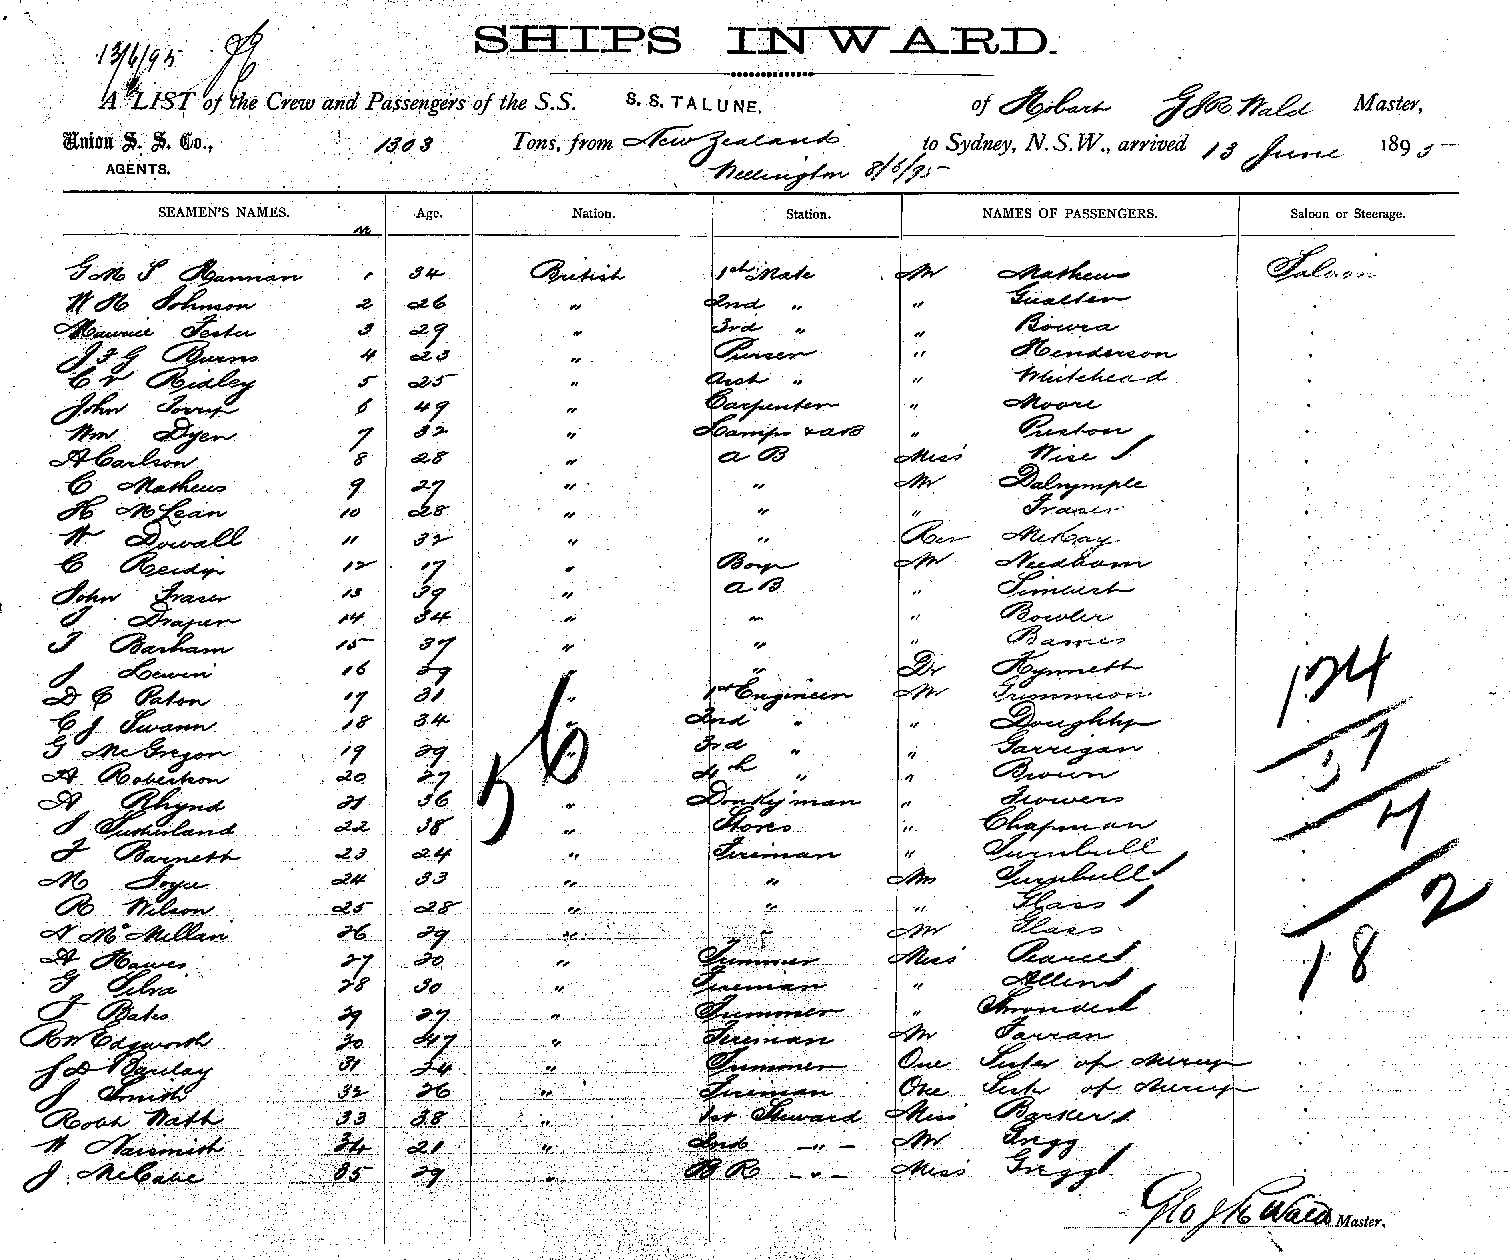 SHIPS INWARD.
13/6/95
A LIST of the Crew and Passengers of the S.S. S.S. TALUNE, of Hobart G J R Wald Master,
Union S. S. Co., 1303 Tons, from New Zealand to Sydney, N.S.W., arrived 13 June 1895
AGENTS. Wellington 8/6/95
SEAMEN'S NAMES. Age. Nation. Station. NAMES OF PASSENGERS. Saloon or Steerage.
G M S Hannan 1 34 British 1st Mate Mr Mathews Saloon
W H Johnson 2 26 " 2nd " " Gualter
Maurice Foster 3 29 " 3rd " " Bowra
J F G Burns 4 23 " Purser " Henderson
C V Ridley 5 25 " Asst " " Whitehead
John 6 49 " Carpenter " Moore
Wm Dyer 7 32 " Lamps & AB " Preston
A Carlson 8 28 " A B Miss Wise
C Mathews 9 27 " " Mr Dalrymple
H McLean 10 28 " " " Fraser
W Dowall 11 32 " " Rev McKay
C Reidy 12 17 " Boy Mr Needham
John Fraser 13 39 " A B "
J Draper 14 34 " " " Bowler
T Barham 15 37 " " " Barnes
J Lewin 16 29 " " Dr Kynnett
D C Paton 17 31 " 1st Engineer Mr
C J Swann 18 34 " 2nd " " Doughty
G McGregor 19 29 " 3rd " " Garrigan
A Robertson 20 27 " 4th " " Brown
A Rhynd 21 36 " Donkeyman " Flowers
J Sutherland 22 38 " Stores " Chapman
F Barnett 23 24 " Fireman " Turnbull
M Joyce 24 33 " " Mrs Turnbull
R Wilson 25 28 " " " Glass
N McMillan 26 29 " " Mr Glass
A Hawes 27 20 " Trimmer Miss Pearce
G Silva 28 30 " Fireman " Allen
T Bates 29 27 " Trimmer "
R W Edgworth 30 47 " Fireman Mr Farran
J D Barclay 31 24 " Trimmer One Sister of Mercy
J Smith 32 26 " Fireman One Sister of Mercy
Robt Watt 33 38 " 1st Steward Miss Barker
W Naismith 34 21 " 2nd " Mr Gregg
J. McCabe 35 29 " B R " Miss Gregg
56
124
37
4
2
18
Geo J R Wald Master.